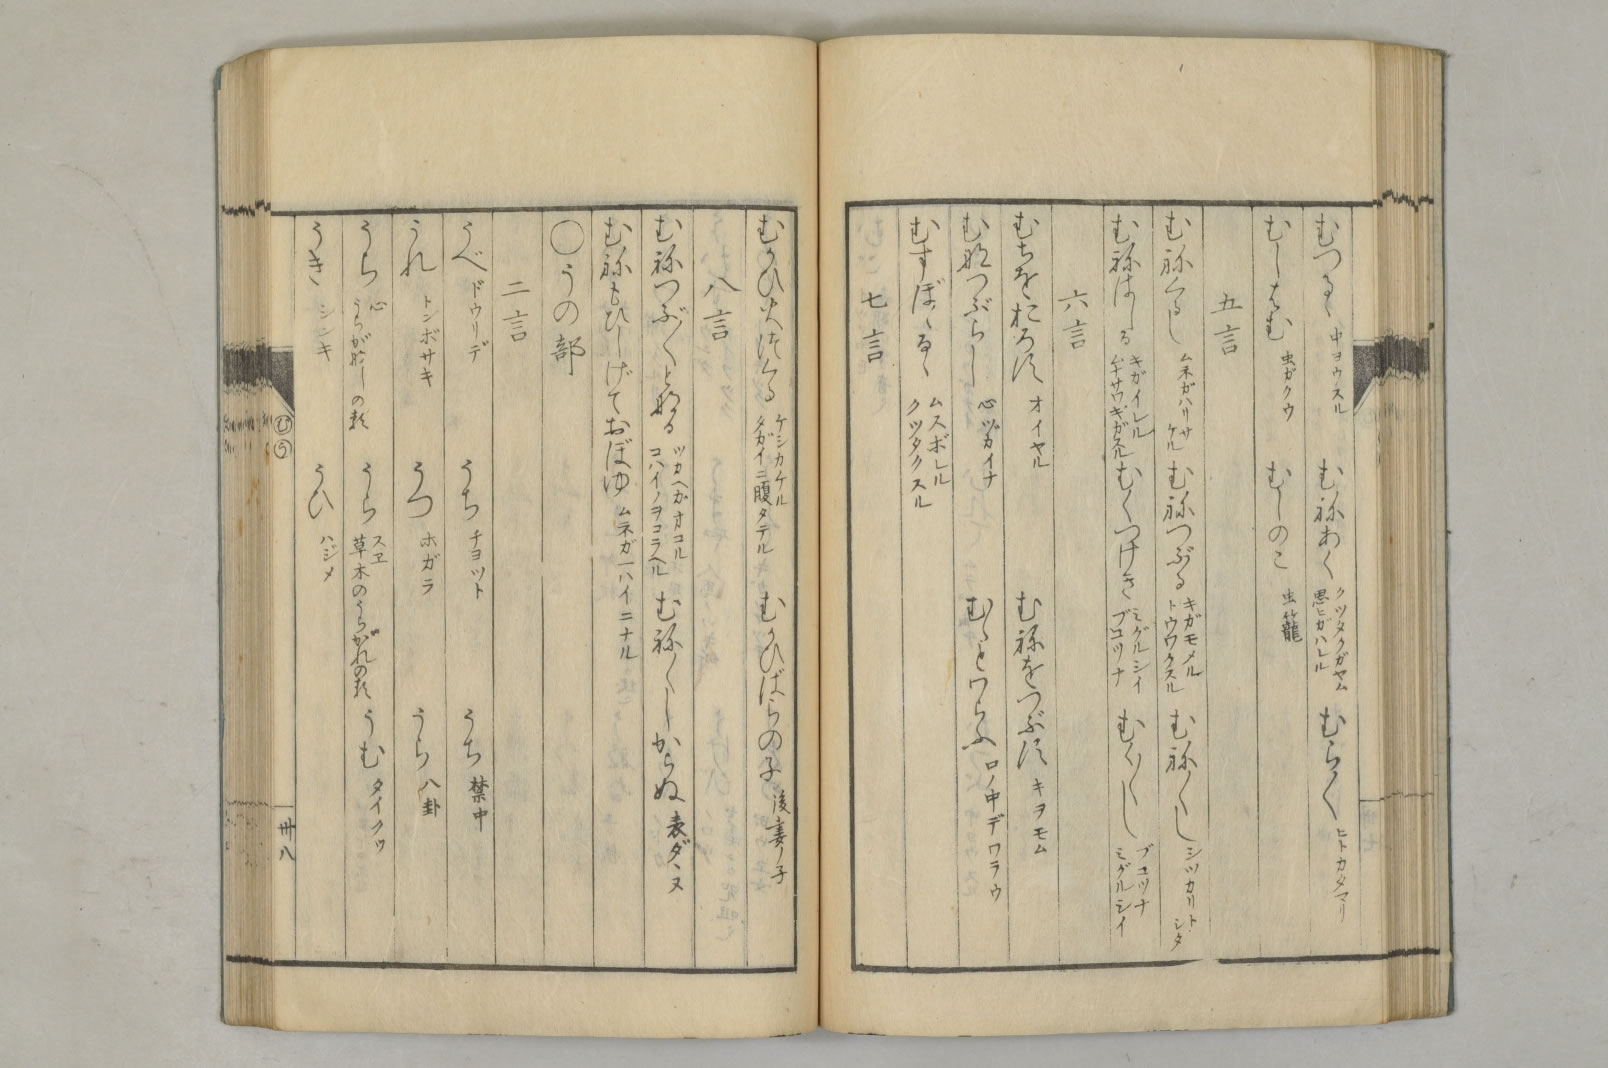 むつるゝ 中ヨウスル　むねあく クツタクガヤム 思ヒガハレル　むら〳〵 ヒトカタマリ
むしはむ 虫ガクウ　むしのこ 虫籠
五言
むねくるし ムネガハリサケル　むねつぶる キガモメル トウワクスル　むね〳〵し シツカリトシタ
むねはしる キガイレル ムナサワギガスル　むくつけき ミグルシイ ブコツナ　むく〳〵し ブコツナ ミグルシイ
六言
むちをおろす オイヤル　むねをつぶす キヲモム
むねつぶらし 心ヅカイナ　むゝとわらふ 口ノ中デワラウ
むすぼゝるゝ ムスボレル クツタクスル
七言
むかひ火つくる ケシカケル タガイニ腹タテル　むかひばらの子 後妻ノ子
八言
むねつぶ〳〵となる ツカヘガオコル コハイノヲコラヘル　むね〳〵しからぬ 表ダヽヌ
むねもひしげておぼゆ ムネガ一ハイニナル
〇うの部
二言
うべ ドウリデ　うち チヨツト　うち 禁中
うれ トンボサキ　うつ ホガラ　うら 八卦
うら 心 うらがなしの類　うら スヱ 草木のうらがれの類　うむ タイクツ
うき シンキ　うひ ハジメ
むう
卅八